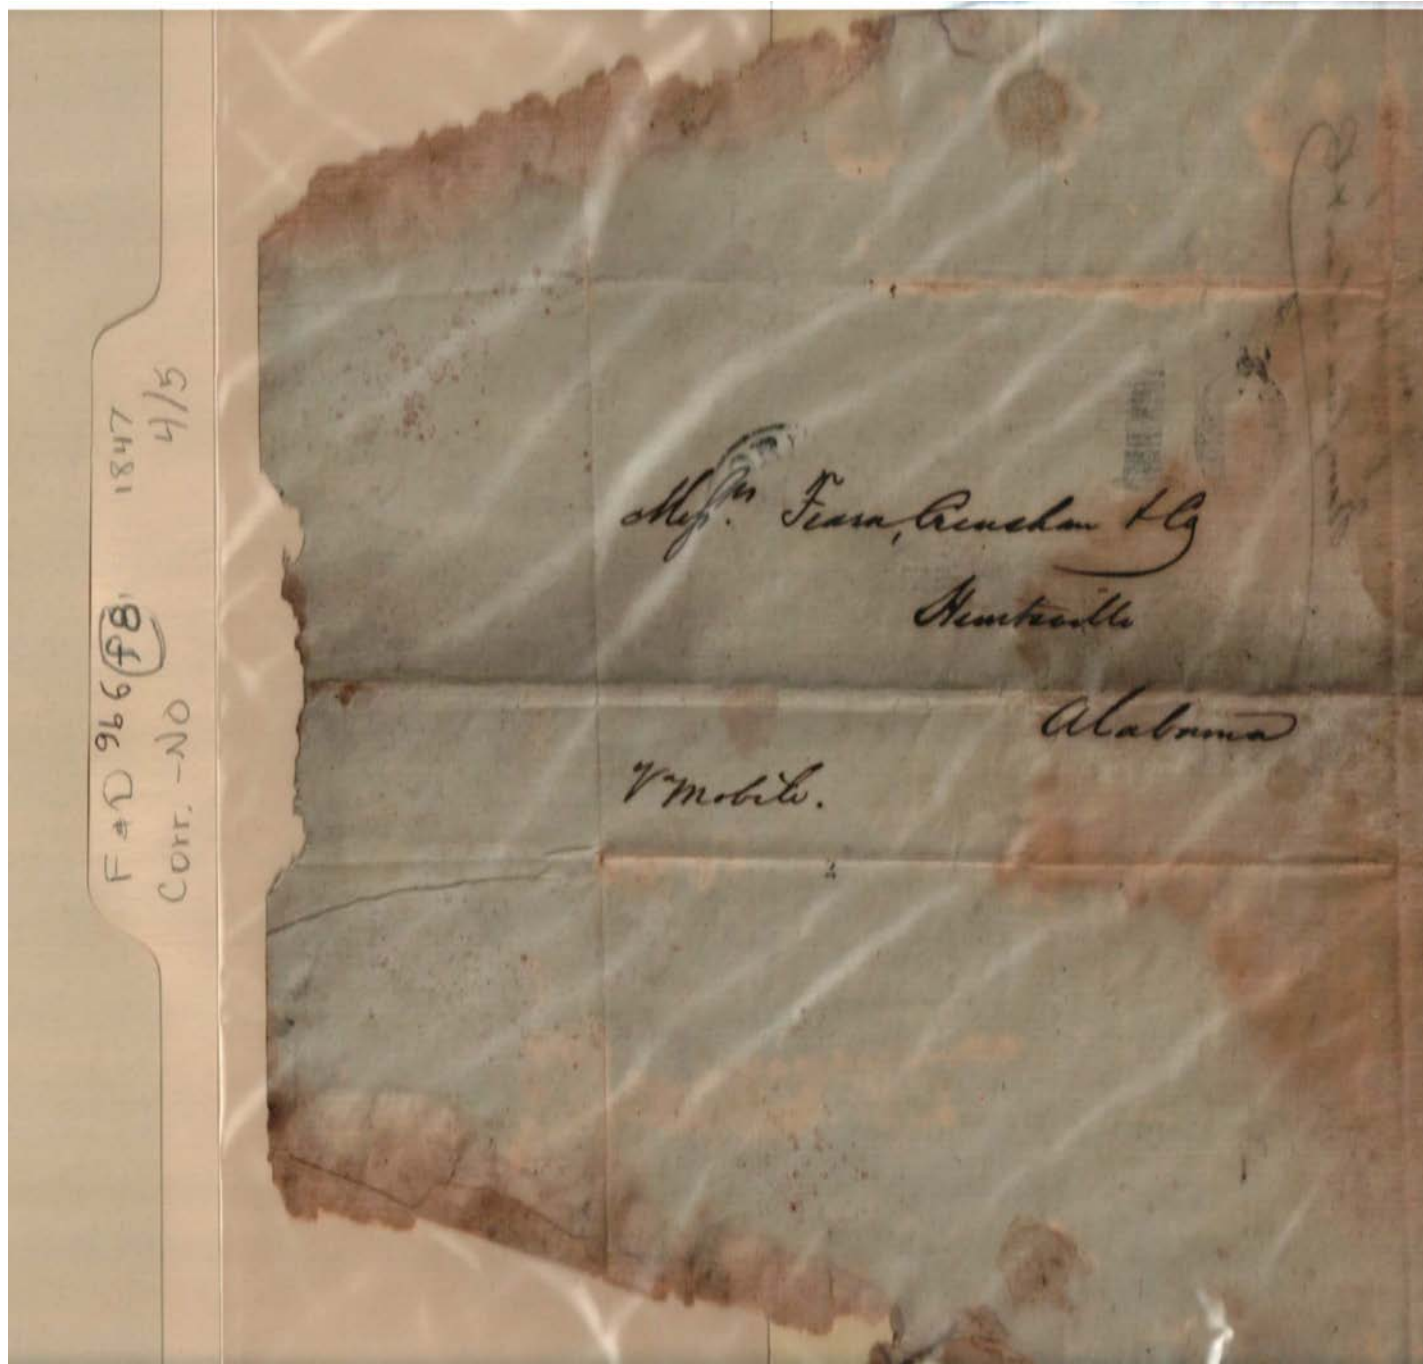 F & D 966 f8 1847
Corr. - NO 4/5
Messrs. Fearn, Crenshaw & Co
Huntsville
Alabama
V Mobile.